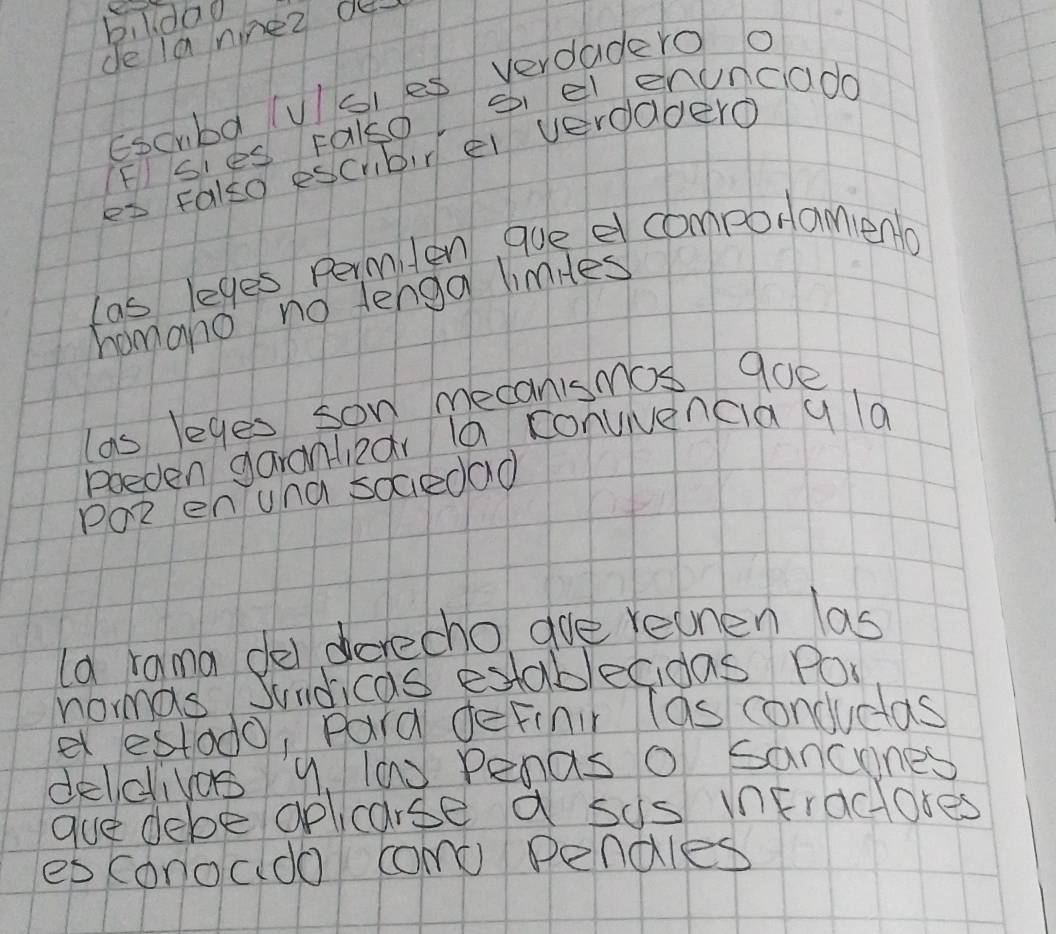 bilidad
de la niñez
Escriba (V) si es verdadero o
(F) si es Falso. si el enunciado
es Falso escribir el verdadero
las leyes permiten que el comportamiento
homano no tenga limites
las leyes son mecanismos que
poeden garantizar la convivencia y la
paz en una sociedad
la rama del derecho que reunen las
normas Juridicas establecidas Por
el estado, para definir las conductas
delictivas y las penas o sanciones
que debe aplicarse a sus infractores
es conocido como Penales